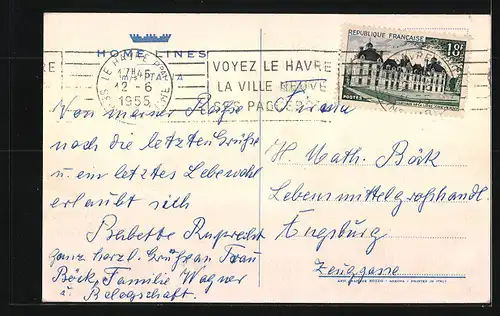 HOME LINES
LE HAVRE
12-6
1955
VOYEZ LE HAVRE
LA VILLE NEUVE
SES PAQUEBOTS
REPUBLIQUE FRANÇAISE
18F
POSTES
Von meiner Reise
noch die letzten Grüße
u. ein letztes Lebewohl
erlaubt sich
Babette Ruprecht
ganz herzl. Grüße an Frau
Böck, Familie Wagner
u. Belegschaft.
Firma
H. Math. Böck
Lebensmittelgroßhandl.
Augsburg
Zeuggasse
PRINTED IN ITALY